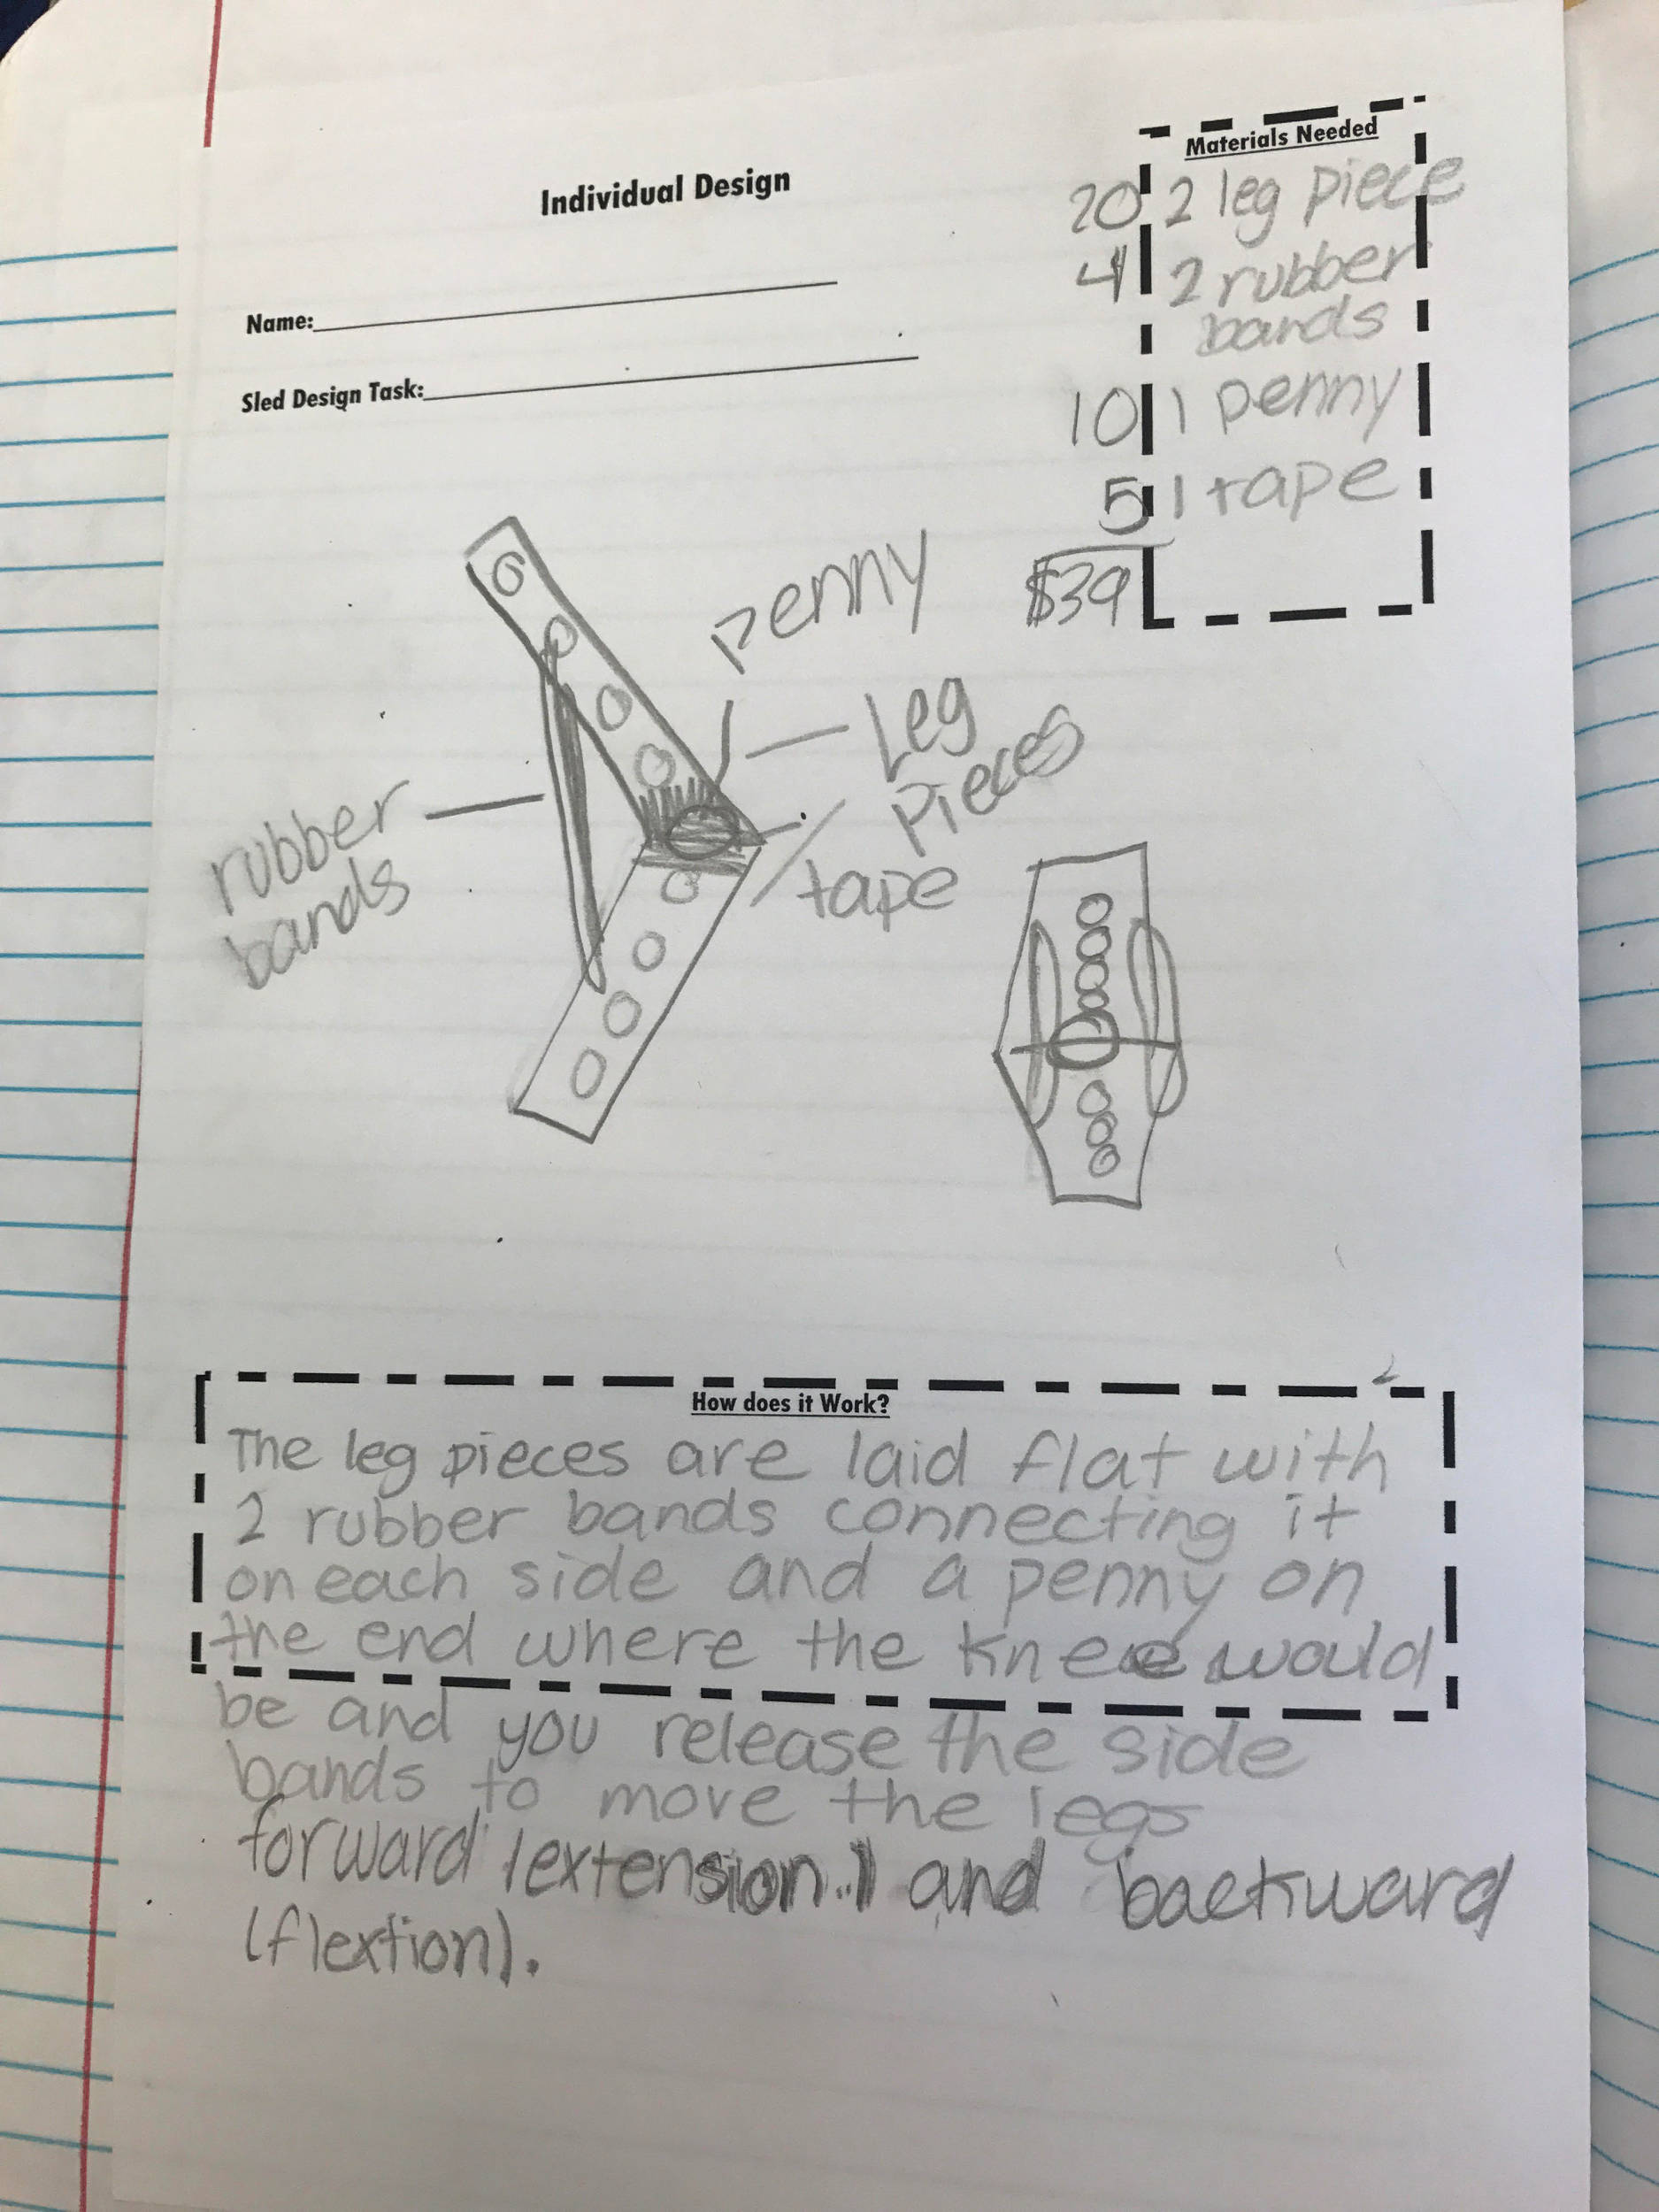 Individual Design
Name:
Sled Design Task:
Materials Needed
20 2 leg piece
4 2 rubber
bands
10 1 penny
5 1 tape
$39
penny
Leg
pieces
tape
rubber
bands
How does it Work?
The leg pieces are laid flat with
2 rubber bands connecting it
on each side and a penny on
the end where the knee would
be and you release the side
bands to move the legs
forward (extension) and backward
(flextion).